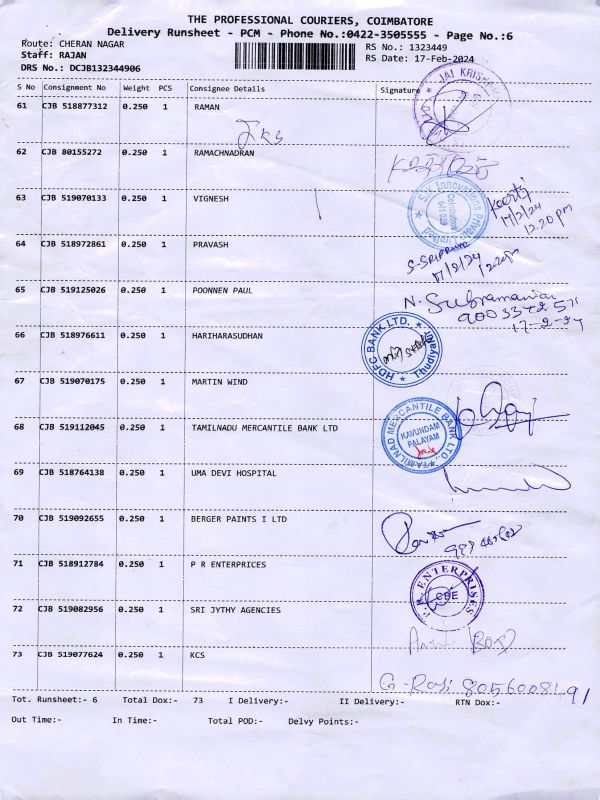 THE PROFESSIONAL COURIERS, COIMBATORE
Delivery Runsheet - PCM - Phone No.:0422-3505555 - Page No.:6
Route: CHERAN NAGAR
RS No.: 1323449
Staff: RAJAN
RS Date: 17-Feb-2024
DRS No.: DCJB132344906
S No Consignment No Weight PCS Consignee Details Signature
61 CJB 518877312 0.250 1 RAMAN
JKS
JAI KRISHNA
62 CJB 80155272 0.250 1 RAMACHNADRAN
63 CJB 519070133 0.250 1 VIGNESH
S.V. Innovations Private Limited
Coimbatore
641 029
Keerthi
17/2/24
12.20 pm
64 CJB 518972861 0.250 1 PRAVASH
17/2/24
65 CJB 519125026 0.250 1 POONNEN PAUL
N. Subramanian
17-2-24
66 CJB 518976611 0.250 1 HARIHARASUDHAN
HDFC BANK LTD. Thudiyalur
67 CJB 519070175 0.250 1 MARTIN WIND
68 CJB 519112045 0.250 1 TAMILNADU MERCANTILE BANK LTD
TAMILNAD MERCANTILE BANK LTD.,
KAVUNDAM
PALAYAM
69 CJB 518764138 0.250 1 UMA DEVI HOSPITAL
70 CJB 519092655 0.250 1 BERGER PAINTS I LTD
71 CJB 518912784 0.250 1 P R ENTERPRICES
P.R. ENTERPRISES
CBE
72 CJB 519082956 0.250 1 SRI JYTHY AGENCIES
73 CJB 519077624 0.250 1 KCS
G. Raji 8056008491
Tot. Runsheet:- 6 Total Dox:- 73 I Delivery:- II Delivery:- RTN Dox:-
Out Time:- In Time:- Total POD:- Delvy Points:-